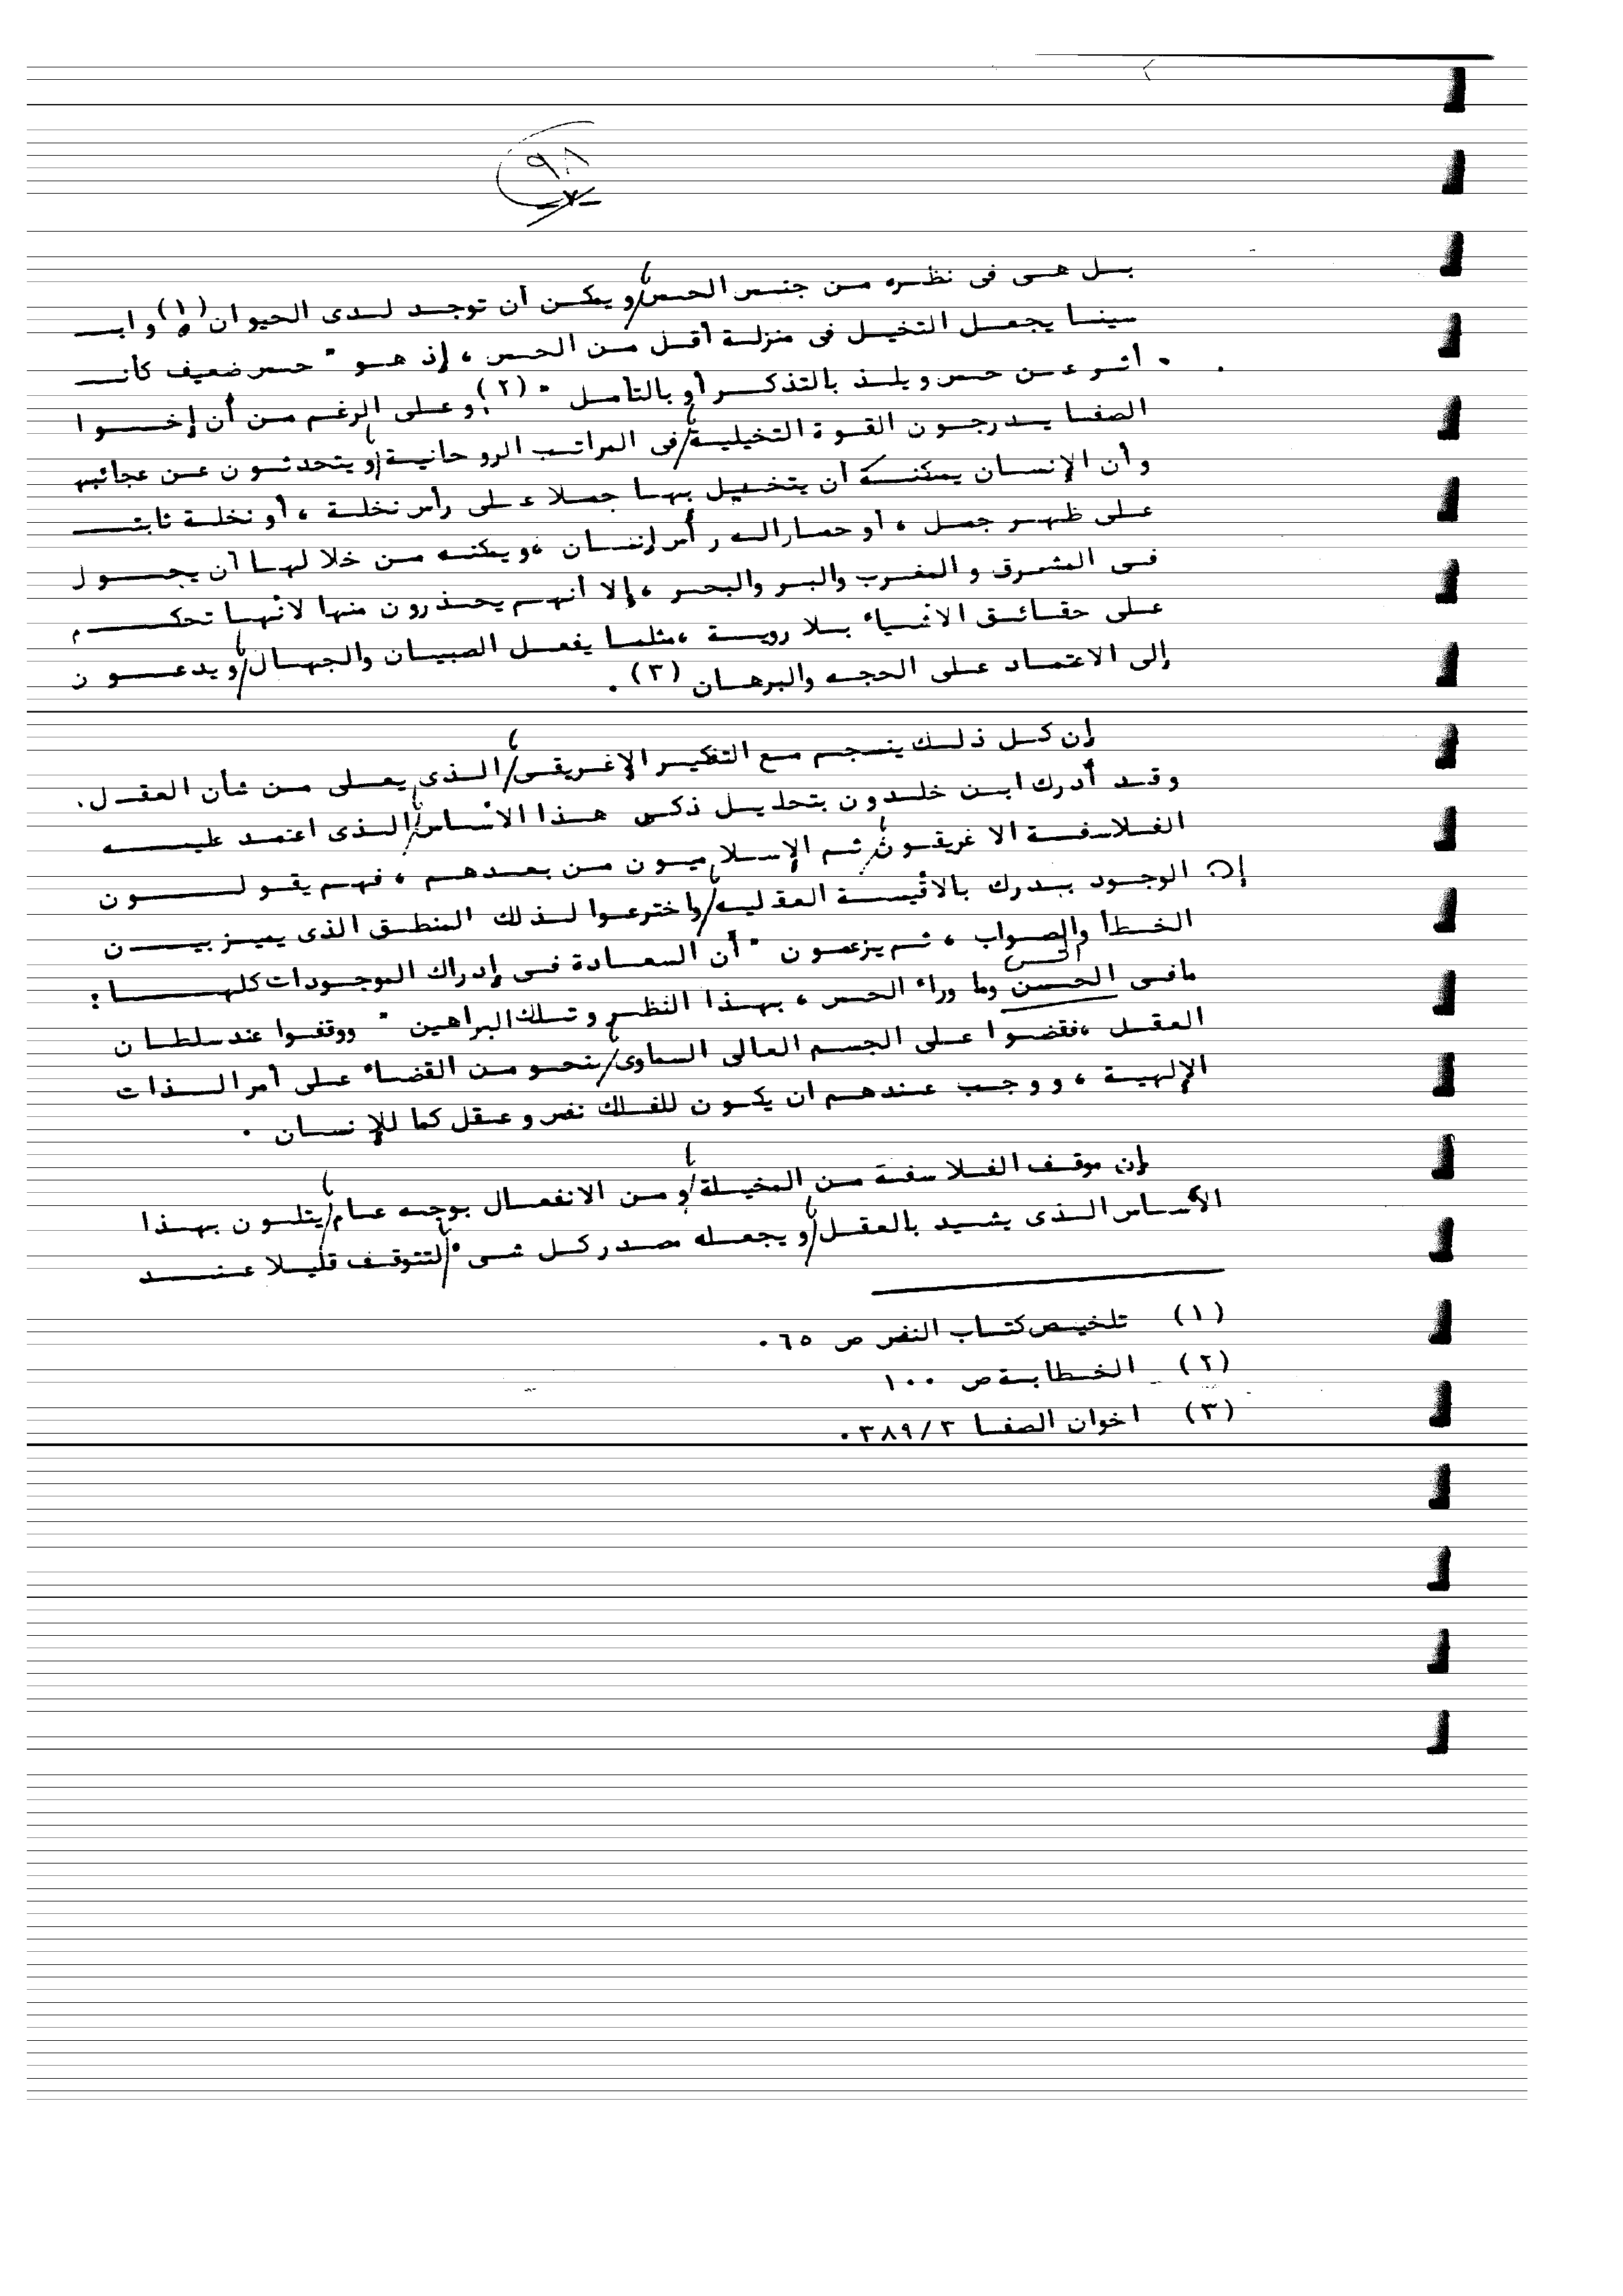 ٩٨
-٧-
بل هى فى نظره من جنس الحس، ويمكن أن توجد لدى الحيوان (١)، وابـ
سينا يجعل التخيل فى منزلة أقل من الحس ، إذ هو " حس ضعيف كأنـ
أثر عن حس ويلذ بالتذكر أو بالتأمل " (٢)، وعلى الرغم من أن إخوا
الصفا يدرجون القوة التخيلية، فى المراتب الروحانية، ويتحدثون عن عجائبها
وأن الإنسان يمكنه أن يتخيل بها جملا على رأس نخلة ، أو نخلة ثابتـ
على ظهر جمل ، أو حمارا له رأس إنسان ، ويمكنه من خلالها أن يجول
فى المشرق والمغرب والبر والبحر ، إلا أنهم يحذرون منها لأنها تحكم
على حقائق الأشياء بلا روية ، مثلما يفعل الصبيان والجهال، ويدعون
إلى الاعتماد على الحجه والبرهان (٣) .
إن كل ذلك ينسجم مع التفكير الإغريقى، الذى يعلى من شأن العقل .
وقد أدرك ابن خلدون بتحليل ذكى هذا الأساس، الذى اعتمد عليه
الفلاسفة الاغريقيون، ثم الإسلاميون من بعدهم ، فهم يقولون
إن الوجود يدرك بالأقيسة العقليه، واخترعوا لذلك المنطق الذى يميز بين
الخطأ والصواب ، ثم يزعمون " أن السعادة فى إدراك الموجودات كلها :
مافى الحس وما وراء الحس ، بهذا النظر وتلك البراهين " ووقفوا عند سلطان
العقل ، فقضوا على الجسم العالى السماوى، بنحو من القضاء على أمر الذات
الإلهية ، ووجب عندهم ان يكون للفلك نفس وعقل كما للإنسان .
إن موقف الفلاسفة من المخيلة، ومن الانفعال بوجه عام، يتلون بهذا
الأساس الذى يشيد بالعقل، ويجعله مصدر كل شىء، لنتوقف قليلا عند
(١) تلخيص كتاب النفس ص ٦٥ .
(٢) الخطابة ص ١٠٠
(٣) اخوان الصفا ٣/٣٨٩ .